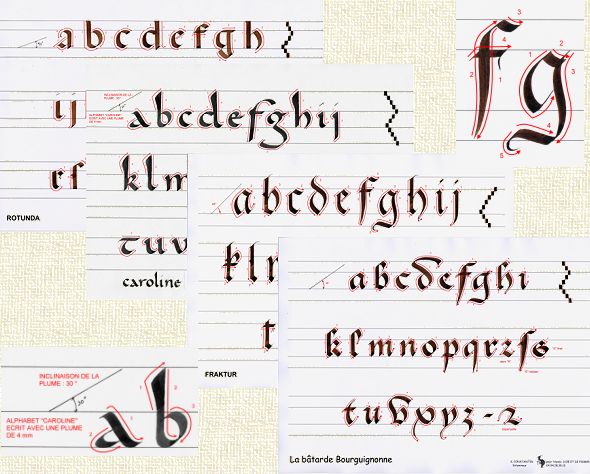 a b c d e f g h
i j
r s
ROTUNDA
INCLINAISON DE LA
PLUME : 30 °
ALPHABET "CAROLINE"
ECRIT AVEC UNE PLUME
DE 4 mm
a b c d e f g h i j
k l m
t u v
caroline
a b c d e f g h i j
k l
t
FRAKTUR
a b c d e f g h i
k l m n o p q r z ſ s
t u v x y z - 2
La bâtarde Bourguignonne
f g
1 2 3 4
1 2 3 4 5
INCLINAISON DE LA
PLUME : 30 °
30°
ALPHABET "CAROLINE"
ECRIT AVEC UNE PLUME
DE 4 mm
a b
1 2 1 2 3